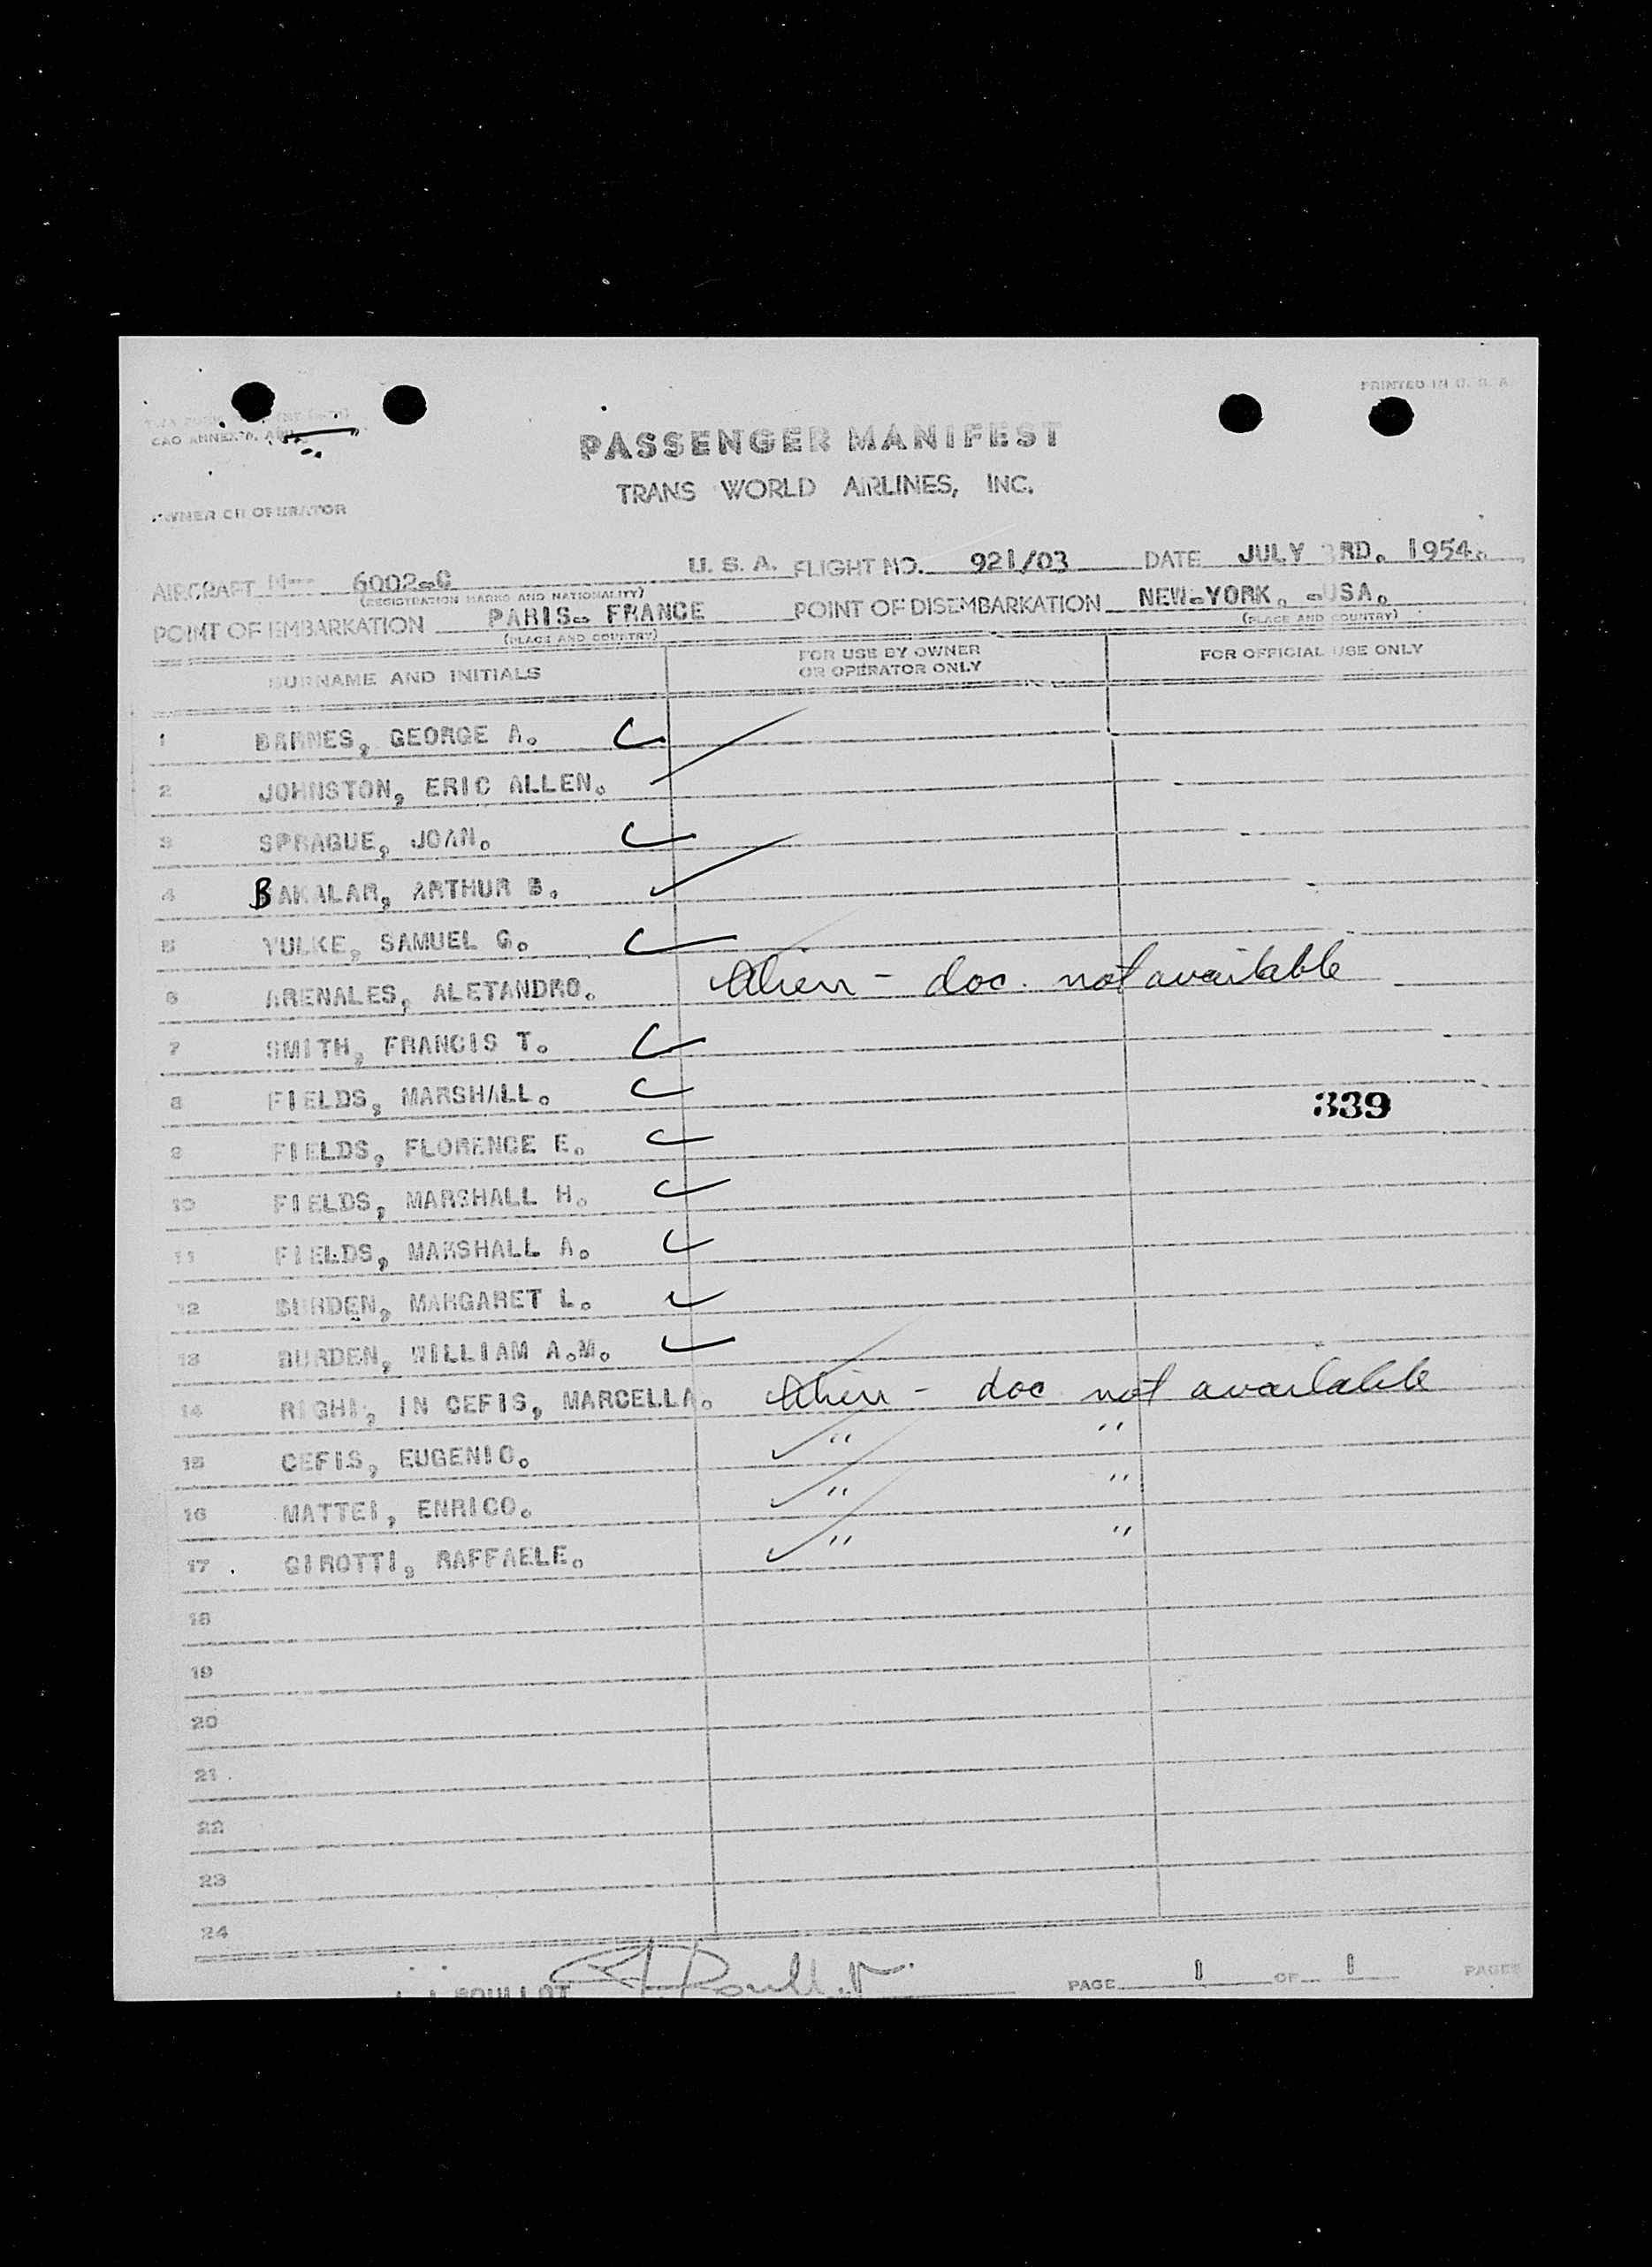 PRINTED IN U. S. A
CAO ANNEX
PASSENGER MANIFEST
TRANS WORLD AIRLINES, INC.
OWNER OR OPERATOR
AIRCRAFT N-- 6002-C U. S. A. FLIGHT NO. 921/03 DATE JULY 3RD. 1954.
(REGISTRATION MARKS AND NATIONALITY)
POINT OF EMBARKATION PARIS- FRANCE POINT OF DISEMBARKATION NEW-YORK. -USA.
(PLACE AND COUNTRY) (PLACE AND COUNTRY)
SURNAME AND INITIALS FOR USE BY OWNER OR OPERATOR ONLY FOR OFFICIAL USE ONLY
1 BARNES, GEORGE A.
2 JOHNSTON, ERIC ALLEN.
3 SPRAGUE, JOAN.
4 BAKALAR, ARTHUR B.
5 YULKE, SAMUEL G.
6 ARENALES, ALETANDRO. Alien - doc. not available
7 SMITH, FRANCIS T.
8 FIELDS, MARSHALL.
339
9 FIELDS, FLORENCE E.
10 FIELDS, MARSHALL H.
11 FIELDS, MARSHALL A.
12 BURDEN, MARGARET L.
13 BURDEN, WILLIAM A.M.
14 RIGHI, IN CEFIS, MARCELLA. Alien - doc not available
15 CEFIS, EUGENIO. " "
16 MATTEI, ENRICO. " "
17 GIROTTI, RAFFAELE. " "
18
19
20
21
22
23
24
POUILLOT PAGE 1 OF 1 PAGES